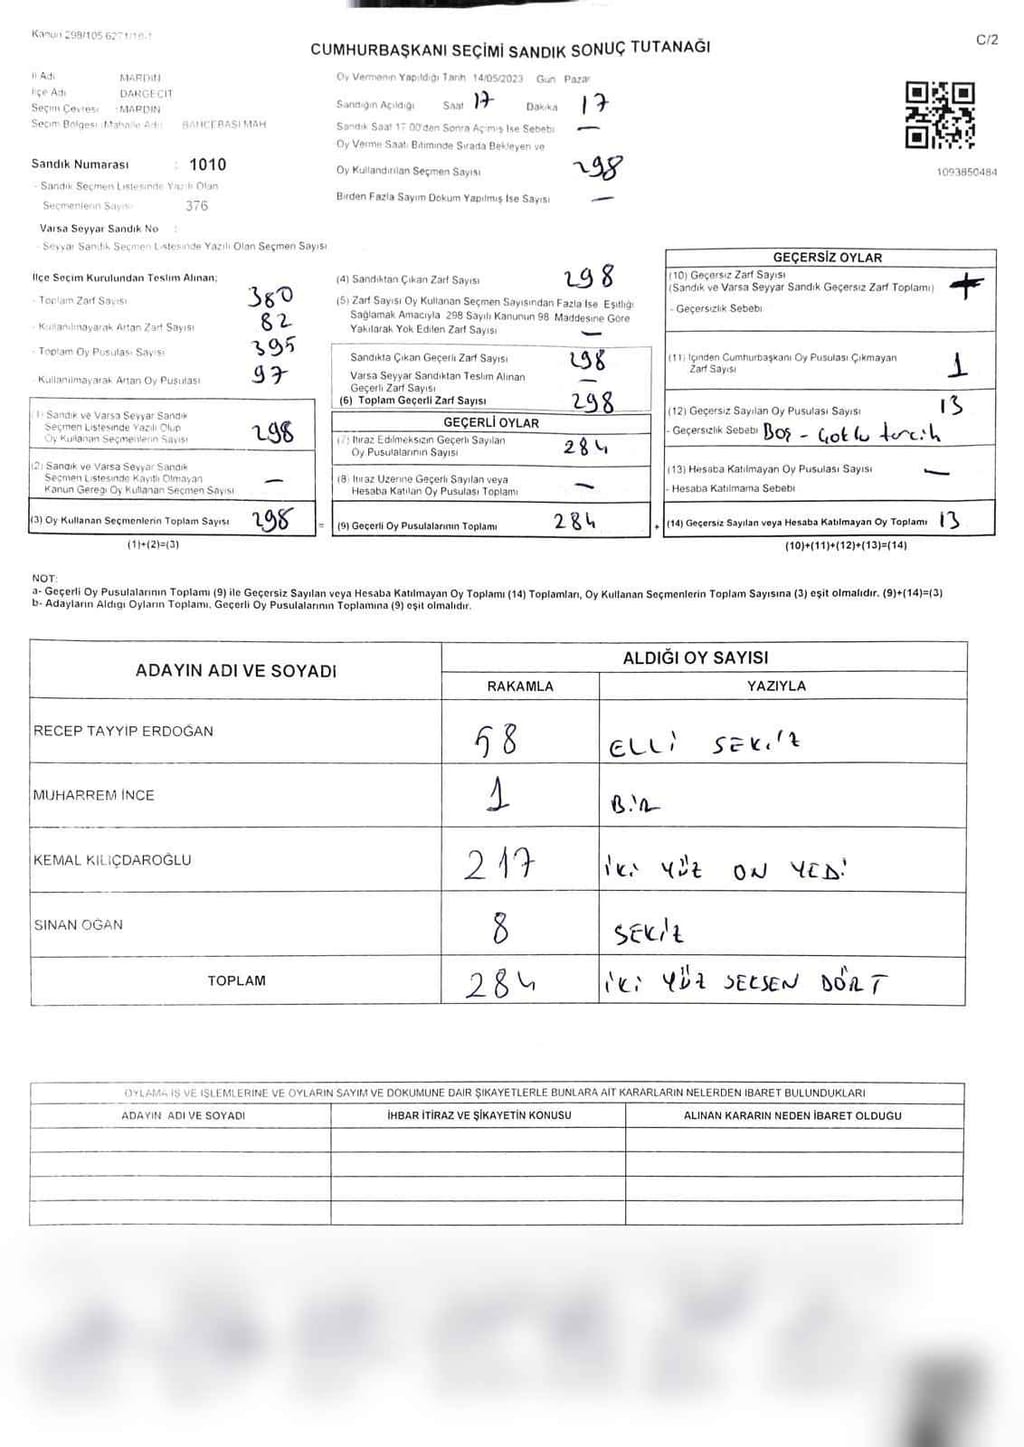 Kanun 298/105 6271/16-1
C/2
CUMHURBAŞKANI SEÇİMİ SANDIK SONUÇ TUTANAĞI
İl Adı MARDİN
İlçe Adı DARGEÇİT
Seçim Çevresi :MARDİN
Seçim Bölgesi (Mahalle Adı) BAHÇEBAŞI MAH
Sandık Numarası : 1010
- Sandık Seçmen Listesinde Yazılı Olan
Seçmenlerin Sayısı 376
Varsa Seyyar Sandık No :
- Seyyar Sandık Seçmen Listesinde Yazılı Olan Seçmen Sayısı
Oy Vermenin Yapıldığı Tarih 14/05/2023 Gün Pazar
Sandığın Açıldığı Saat 17 Dakika 17
Sandık Saat 17:00'den Sonra Açılmış İse Sebebi —
Oy Verme Saati Bitiminde Sırada Bekleyen ve
Oy Kullandırılan Seçmen Sayısı 298
Birden Fazla Sayım Döküm Yapılmış İse Sayısı —
1093850484
İlçe Seçim Kurulundan Teslim Alınan;
- Toplam Zarf Sayısı 380
- Kullanılmayarak Artan Zarf Sayısı 82
- Toplam Oy Pusulası Sayısı 395
Kullanılmayarak Artan Oy Pusulası 97
(1) Sandık ve Varsa Seyyar Sandık
Seçmen Listesinde Yazılı Olup
Oy Kullanan Seçmenlerin Sayısı 298
(2) Sandık ve Varsa Seyyar Sandık
Seçmen Listesinde Kayıtlı Olmayan
Kanun Gereği Oy Kullanan Seçmen Sayısı —
(3) Oy Kullanan Seçmenlerin Toplam Sayısı 298 =
(1)+(2)=(3)
(4) Sandıktan Çıkan Zarf Sayısı 298
(5) Zarf Sayısı Oy Kullanan Seçmen Sayısından Fazla İse Eşitliği
Sağlamak Amacıyla 298 Sayılı Kanunun 98 Maddesine Göre
Yakılarak Yok Edilen Zarf Sayısı —
Sandıkta Çıkan Geçerli Zarf Sayısı 298
Varsa Seyyar Sandıktan Teslim Alınan
Geçerli Zarf Sayısı —
(6) Toplam Geçerli Zarf Sayısı 298
GEÇERLİ OYLAR
(7) İtiraz Edilmeksizin Geçerli Sayılan
Oy Pusulalarının Sayısı 284
(8) İtiraz Üzerine Geçerli Sayılan veya
Hesaba Katılan Oy Pusulası Toplamı —
(9) Geçerli Oy Pusulalarının Toplamı 284 +
GEÇERSİZ OYLAR
(10) Geçersiz Zarf Sayısı
(Sandık ve Varsa Seyyar Sandık Geçersiz Zarf Toplamı)
- Geçersizlik Sebebi
(11) İçinden Cumhurbaşkanı Oy Pusulası Çıkmayan
Zarf Sayısı 1
(12) Geçersiz Sayılan Oy Pusulası Sayısı 13
- Geçersizlik Sebebi Boş - Çoklu tercih
(13) Hesaba Katılmayan Oy Pusulası Sayısı —
- Hesaba Katılmama Sebebi
(14) Geçersiz Sayılan veya Hesaba Katılmayan Oy Toplamı 13
(10)+(11)+(12)+(13)=(14)
NOT:
a- Geçerli Oy Pusulalarının Toplamı (9) ile Geçersiz Sayılan veya Hesaba Katılmayan Oy Toplamı (14) Toplamları, Oy Kullanan Seçmenlerin Toplam Sayısına (3) eşit olmalıdır. (9)+(14)=(3)
b- Adayların Aldığı Oyların Toplamı, Geçerli Oy Pusulalarının Toplamına (9) eşit olmalıdır.
ADAYIN ADI VE SOYADI
ALDIĞI OY SAYISI
RAKAMLA YAZIYLA
RECEP TAYYİP ERDOĞAN 58 ELLİ SEKİZ
MUHARREM İNCE 1 BİR
KEMAL KILIÇDAROĞLU 217 İKİ YÜZ ON YEDİ
SİNAN OĞAN 8 SEKİZ
TOPLAM 284 İKİ YÜZ SEKSEN DÖRT
OYLAMA İŞ VE İŞLEMLERİNE VE OYLARIN SAYIM VE DÖKÜMÜNE DAİR ŞİKAYETLERLE BUNLARA AİT KARARLARIN NELERDEN İBARET BULUNDUKLARI
ADAYIN ADI VE SOYADI İHBAR İTİRAZ VE ŞİKAYETİN KONUSU ALINAN KARARIN NEDEN İBARET OLDUĞU